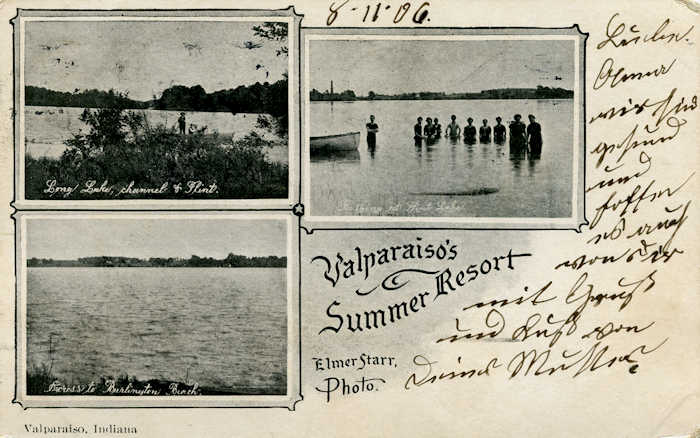 8-11-06.
Long Lake, channel to Flint.
Bathing at Flint Lake.
Across to Burlington Beach.
Valparaiso's
Summer Resort
Elmer Starr,
Photo.
Valparaiso, Indiana
wir sind
gesund
und
hoffen
es auch
von Dir
mit Gruß
und Kuß von
Deiner Mutter